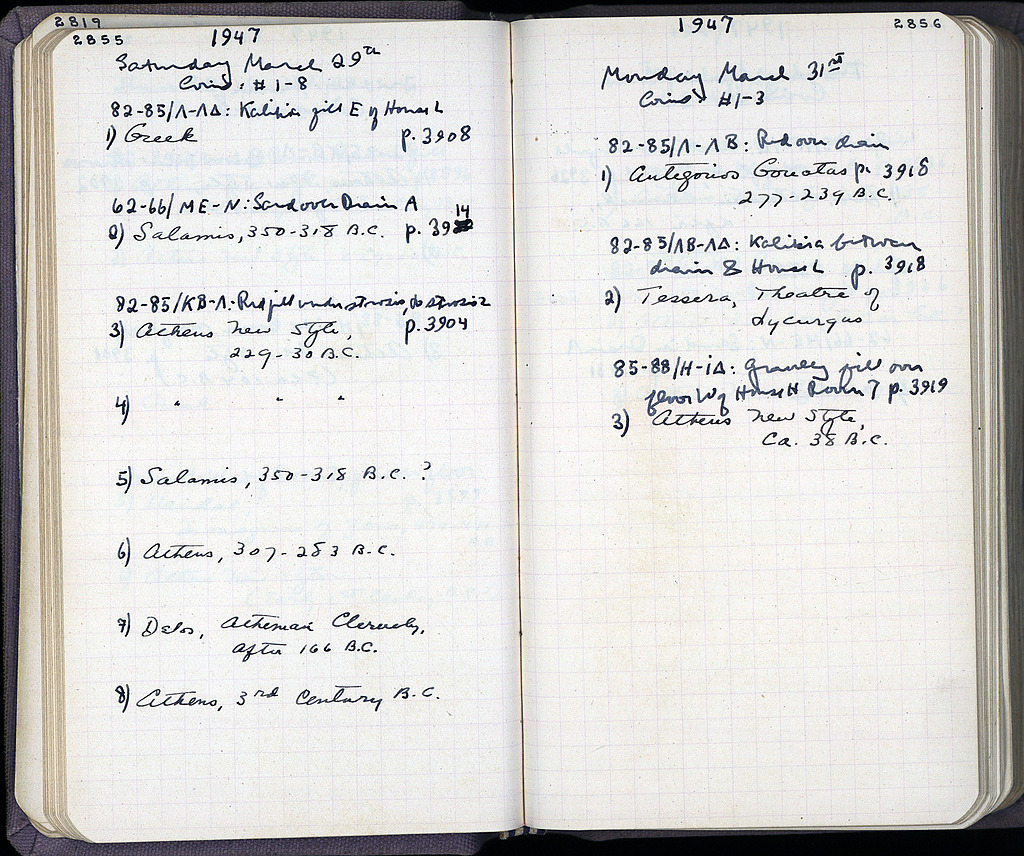 2819
2855
1947
Saturday March 29th
Coins: #1-8
82-85/Λ-ΛΔ: Kalikia fill E of House L
1) Greek p. 3908
62-66/ME-N: Sand over Drain A
2) Salamis, 350-318 B.C. p. 3914
82-85/KB-Λ: Red fill under strosis, to strosis 2
3) Athens New Style, p. 3904
229-30 B.C.
4) " " "
5) Salamis, 350-318 B.C. ?
6) Athens, 307-283 B.C.
7) Delos, Athenian Cleruchy,
after 166 B.C.
8) Athens, 3rd Century B.C.
1947
2856
Monday March 31st
Coins: #1-3
82-85/Λ-ΛB: Red over drain
1) Antigonos Gonatas p. 3918
277-239 B.C.
82-85/ΛB-ΛΔ: Kalikia between
drain & House L p. 3918
2) Tessera, Theatre of
Lycurgus
85-88/H-ΙΔ: Gravelly fill over
floor W of House H Room 7 p. 3919
3) Athens New Style,
Ca. 38 B.C.